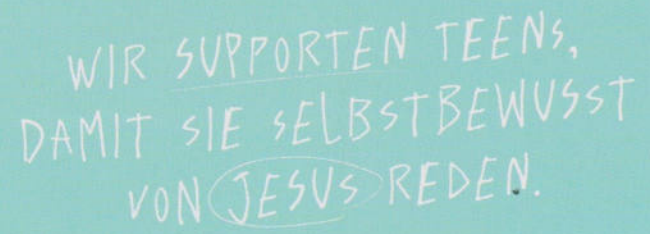 WIR SUPPORTEN TEENS,
DAMIT SIE SELBSTBEWUSST
VON JESUS REDEN.